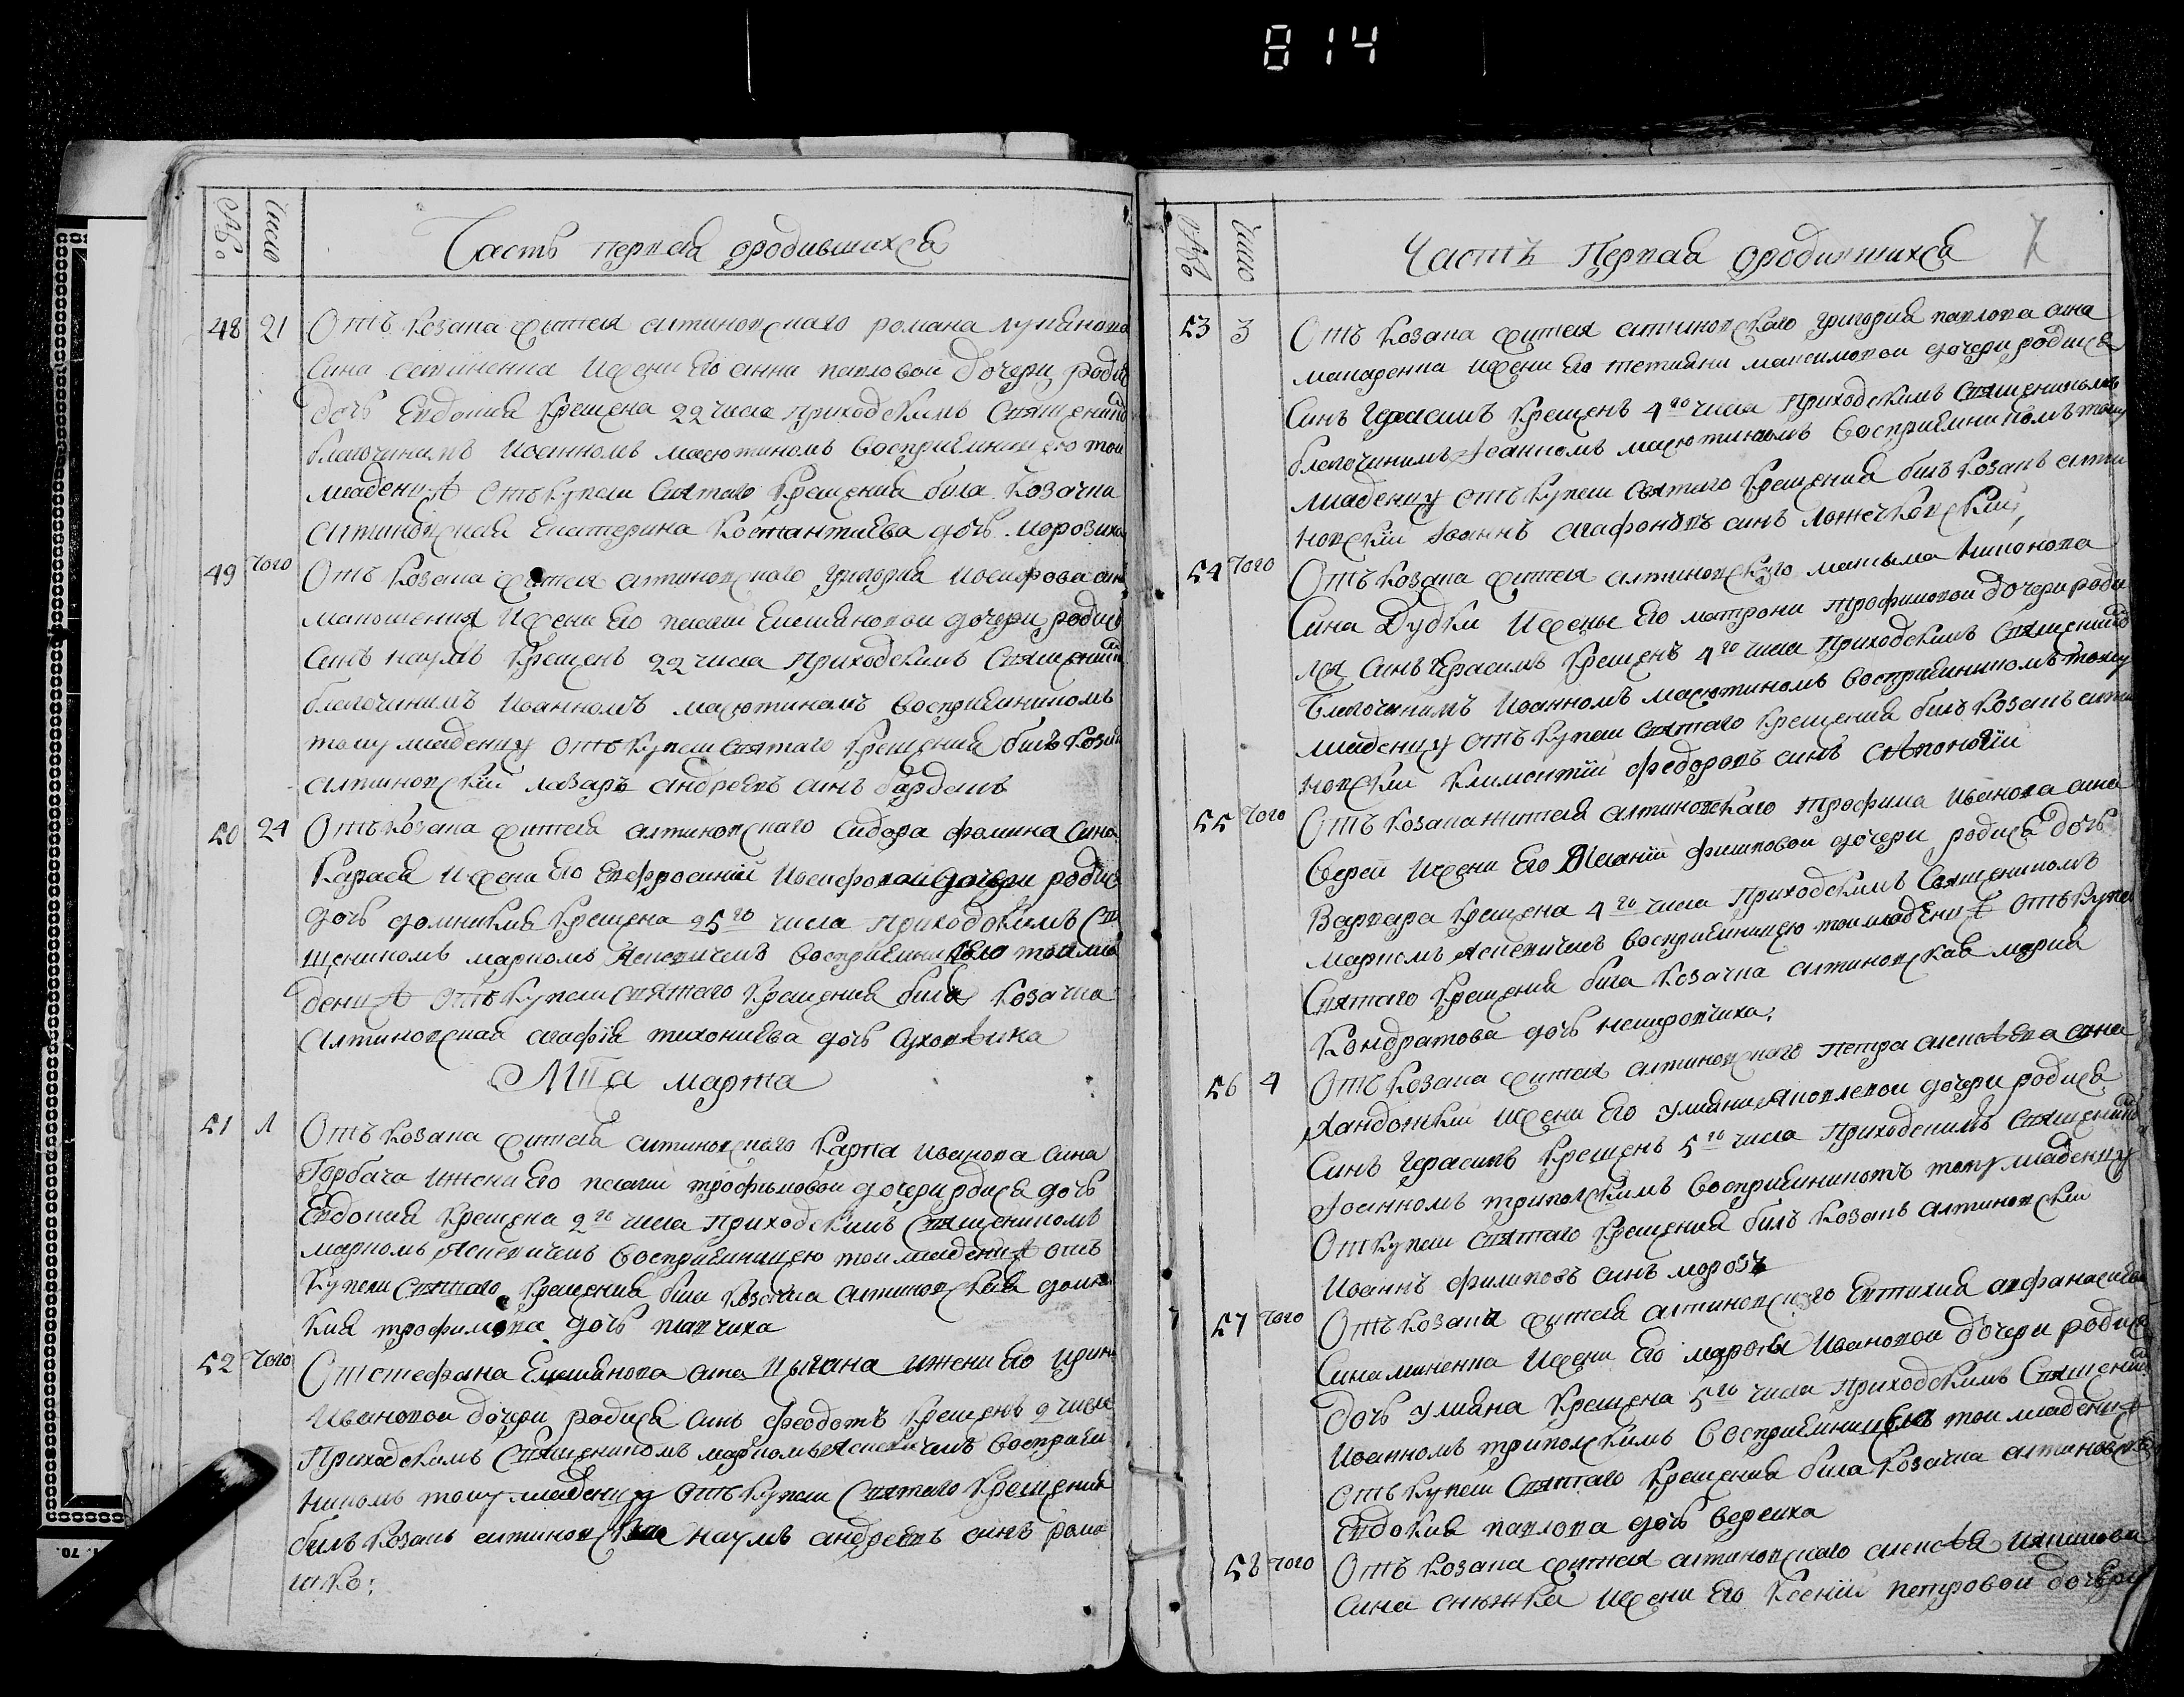 814
№
Число
Часть первая ородившихся
48 21 Отъ козака жителя алтиновскаго романа лукянова
Сина жени Его анни павловой дочери родис
дочь Евдокия Крещена 22 числа приходскимъ Священико
благочинимъ Иоанномъ масютиномъ восприемницею той
младенцѣ отъ купели Святаго Крещения била козачка
алтиновская Екатерина Костантиева дочь морозиха
49 того Отъ козака жителя алтиновскаго григория иосифова син
матошенка Ижени Его пелагии Емелиановой дочери родис
Синъ наумъ Крещенъ 22 числа Приходскимъ Священик
благочинимъ Иоанномъ масютиномъ восприемникомъ
тому младенцу отъ купели Святаго Крещения билъ козак
алтиновскїй лазаръ андреевъ синъ
50 24 Отъ козака жителя алтиновскаго Сидора фомина Сина
Карася Ижени Его Евфросинїй Иосифовой дочери родис
дочь домникия Крещена 25го числа приходскимъ Свя
щеникомъ маркомъ Ясневичемъ восприемницею той мла
денцѣ отъ купели святаго Крещения била козачка
алтиновская агафїя тихониева дочь
Мця марта
51 1 Отъ козака жителя алтиновскаго Карпа иванова сина
Горбача ижени Его пелагии трофимовой дочери родися дочь
Евдокия Крещена 2го числа приходскимъ Священикомъ
маркомъ Ясневичемъ восприемницею той младенцѣ отъ
купели Святаго Крещения била козачка алтиновская домни
кия трофимова дочь
52 того От стефана Емелианова сина Цыгана ижени Его ирин
Ивановой дочери родися синъ феодотъ Крещенъ 2 числа
Приходскимъ Священикомъ маркомъ Ясневичемъ восприем
никомъ тому младенцу отъ купели Святаго Крещения
билъ козакъ алтиновскїй наумъ андреевъ синъ рома
шко:
№
Число
Часть Первая ородившихся 7
53 3 Отъ козака жителя алтиновскаго григория павлова сина
макаренка ижени Его тетияни максимовой дочери родися
Синъ Герасимъ Крещенъ 4го числа Приходскимъ Священикомъ
благочинимъ Иоанномъ масютиномъ восприемникомъ тому
младенцу отъ купели Святаго Крещения билъ козакъ алти
новскїй Иоаннъ агафоновъ синъ
54 того Отъ козака жителя алтиновскаго максыма никонова
Сина Дудки Ижены Его матрони трофимовой дочери роди
ля синъ Герасимъ Крещенъ 4го числа Приходскимъ Священико
Благочинимъ Иоанномъ масютиномъ восприемникомъ тому
младенцу отъ купели Святаго Крещения билъ козакъ алти
новскїй Климентїй федоровъ синъ
55 того Отъ козака жителя алтиновскаго трофима Иванова сина
Ижени Его филиповой дочери родися дочь
Варвара Крещена 4го числа Приходскимъ Священикомъ
маркомъ Ясневичемъ восприемницею той младенцѣ отъ купел
Святаго Крещения била козачка алтиновская мария
Кондратова дочь
56 4 Отъ козака жителя алтиновскаго петра алексѣева сина
Ижени Его улияни Яковлевой дочери родися
Синъ Герасимъ Крещенъ 5го числа Приходскимъ Священико
Иоанномъ трипольскимъ восприемникомъ тому младенцу
От купели Святаго Крещения билъ козакъ алтиновскїй
Иоаннъ филиповъ синъ морозъ
57 того Отъ козака жителя алтиновскаго Евтихия афанасиева
Сина миненка Ижени Его марѳы Ивановой дочери родися
дочь улияна Крещена 5го числа Приходскимъ Священик
Иоанномъ трипольскимъ восприемницею той младенцѣ
отъ купели Святаго Крещения била козачка алтиновска
Евдокия павлова дочь
58 того Отъ козака жителя алтиновскаго алексѣя
сина снѣжка Ижени Его Ксенїи петровой дочери